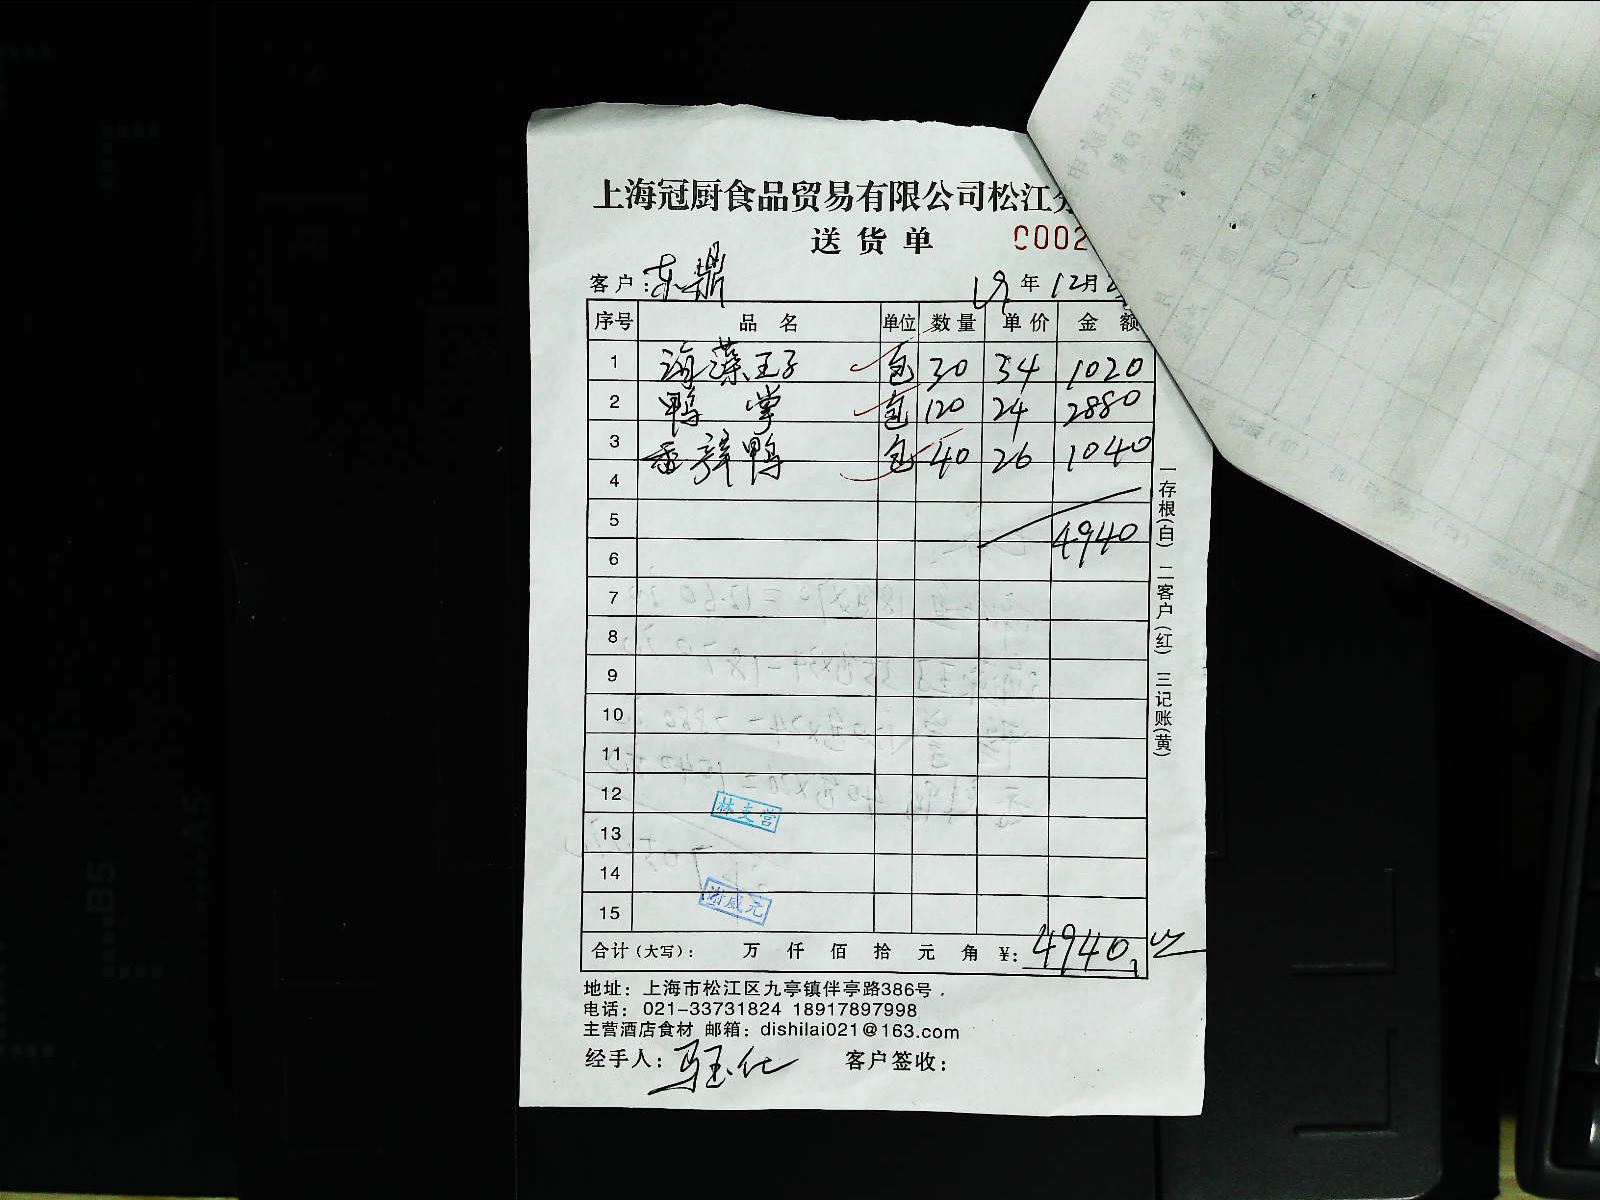 上海冠厨食品贸易有限公司松江
送货单
0002
客户：东鼎
19年12月
序号 品名 单位 数量 单价 金额
1 海藻王子 包 30 34 1020
2 鸭掌 包 120 24 2880
3 香辣鸭 包 40 26 1040
4
5 4940
6
7
8
9
10
11
12
13
14
15
合计（大写）： 万 仟 佰 拾 元 角 ¥：4940
地址：上海市松江区九亭镇伴亭路386号．
电话：021-33731824 18917897998
主营酒店食材 邮箱：dishilai021@163.com
经手人： 客户签收：
一存根（白） 二客户（红） 三记账（黄）